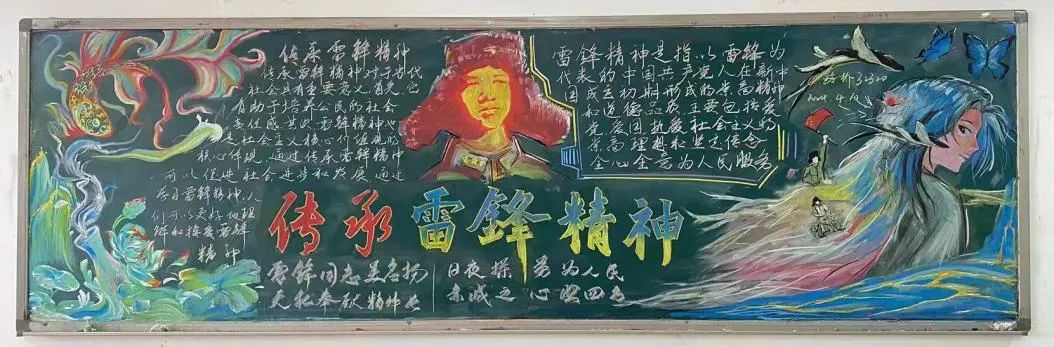 传承雷锋精神
传承雷锋精神对于当代
社会具有重要意义首先它
有助于培养公民的社会
责任感其次雷锋精神也
是社会主义核心价值观的
核心体现通过传承雷锋精神
可以促进社会进步和发展通过
学习雷锋精神人
们可以更好地理
解和接受雷锋
精神
雷鋒精神是指以雷鋒为
代表的中国共产党人在新中
国成立初期形成的崇高精神
和道德品质主要包括爱
党爱国热爱社会主义的
崇高理想和坚定信念
全心全意为人民服务
2024.4.12
传承雷鋒精神
雷锋同志美名扬
无私奉献精神长
日夜操劳为人民
赤诚之心照四方